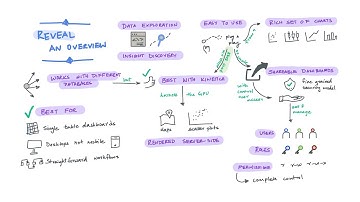 REVEAL
AN OVERVIEW
DATA EXPLORATION
INSIGHT DISCOVERY
EASY TO USE
plug &
play
RICH SET OF CHARTS
WORKS WITH DIFFERENT
DATABASES
but
BEST WITH KINETICA
SHAREABLE DASHBOARDS
fine grained
security model
with
control over
access
the GPU
maps
scatter plots
RENDERED SERVER-SIDE
BEST FOR
Single table dashboards
Desktops not mobile
Straightforward workflows
manage
USERS
ROLES
PERMISSIONS
complete control